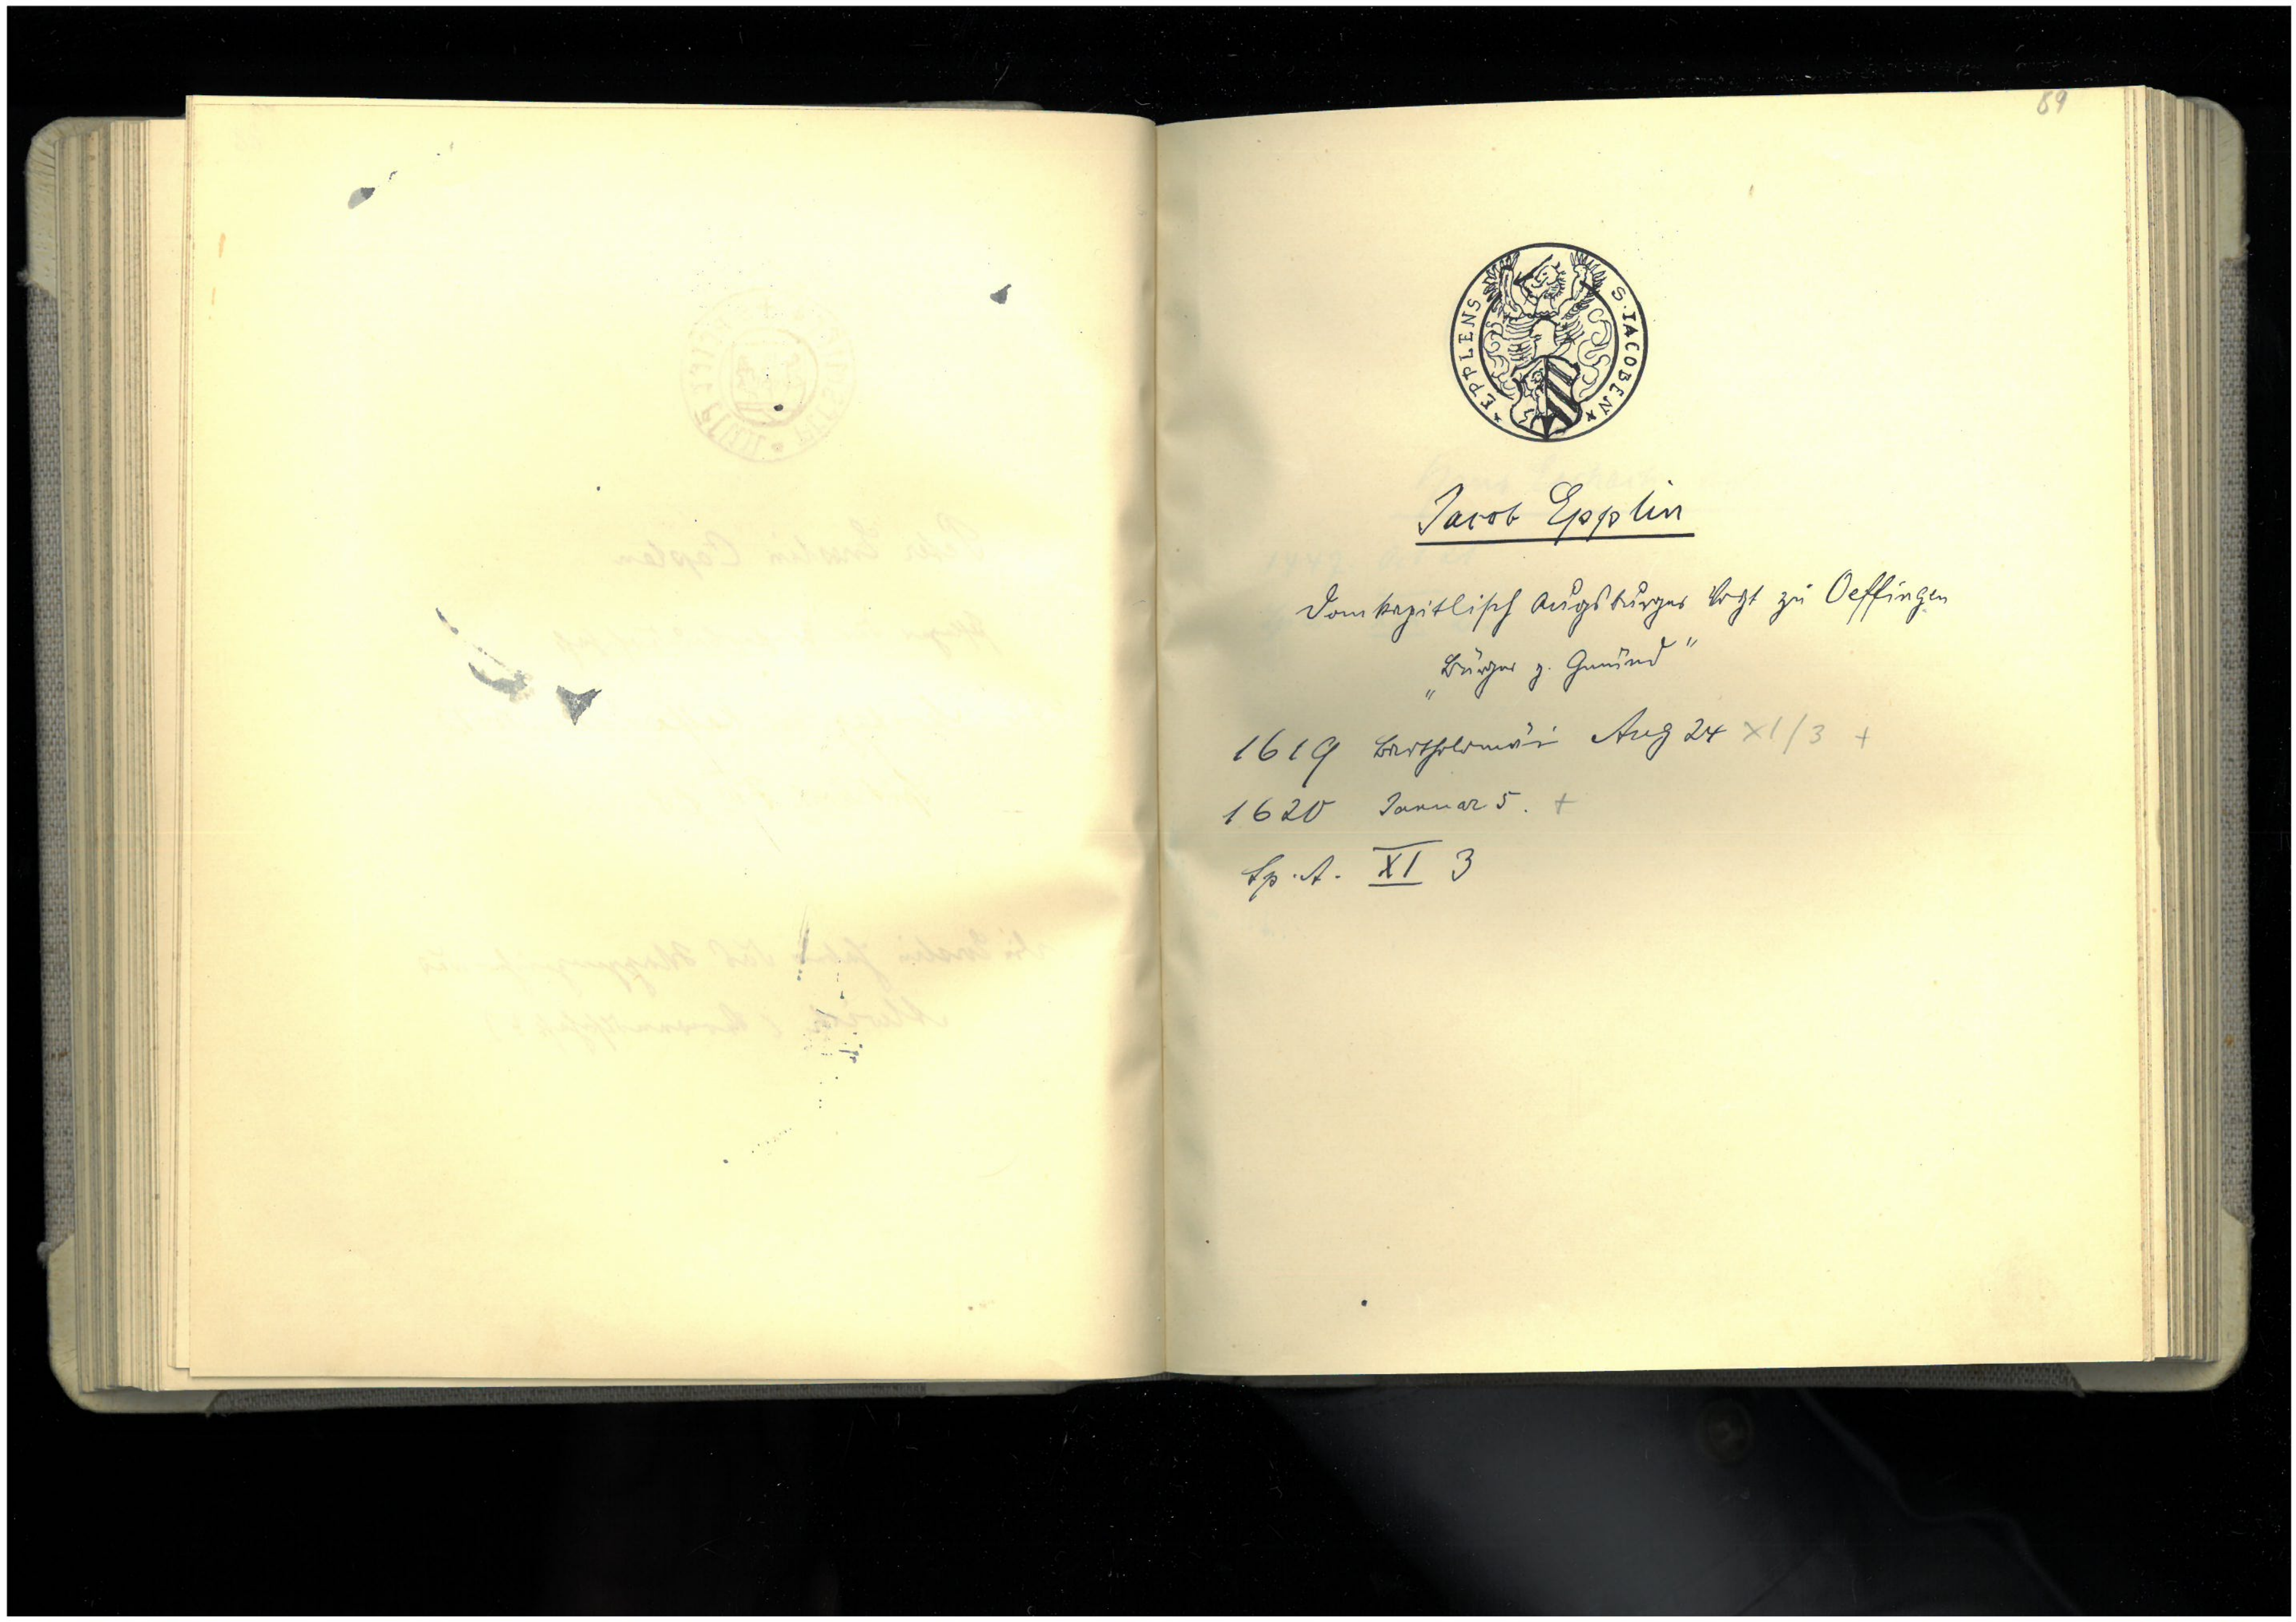 89
S · IACOBEN * * EPPLENS
Jacob Epplin
Domkapitlisch Augsburger Vogt zu Oeffingen
„Bürger z. Gmünd"
1619 Bartholomäi Aug 24 XI/3 +
1620 Januar 5. +
Sp. A. XI 3